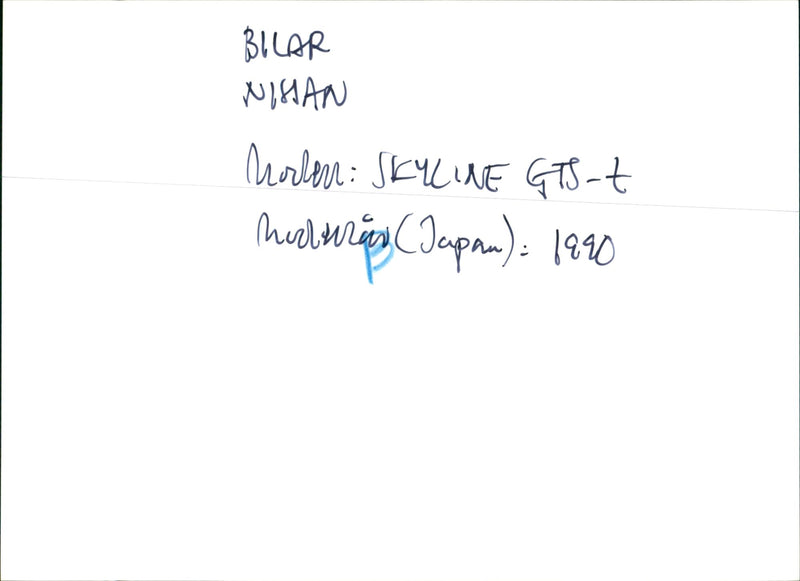 BILAR
NISSAN
Modell: SKYLINE GTS-t
Modellår (Japan): 1990